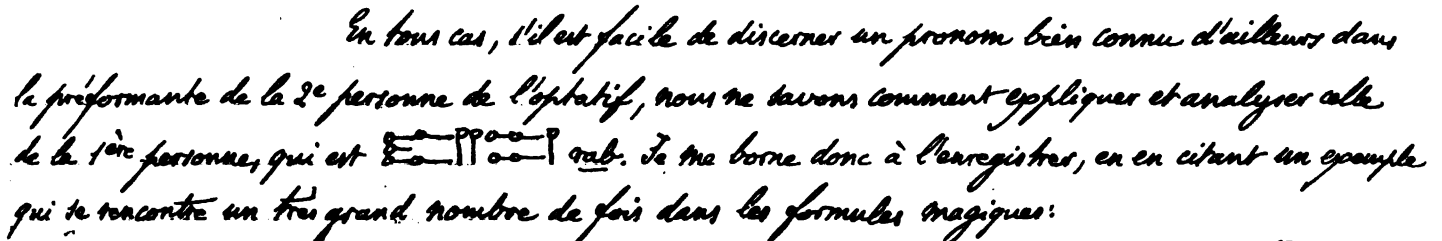 En tous cas, s'il est facile de discerner un pronom bien connu d'ailleurs dans
la préformante de la 2e personne de l'optatif, nous ne savons comment expliquer et analyser celle
de la 1ère personne, qui est rab. Je me borne donc à l'enregistrer, en en citant un exemple
qui se rencontre un très grand nombre de fois dans les formules magiques: